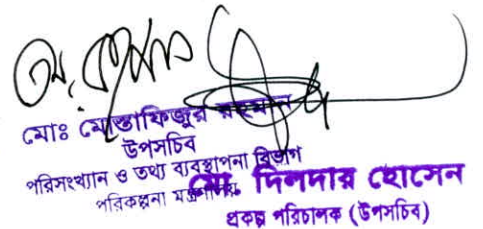 মোঃ মোস্তাফিজুর রহমান
উপসচিব
পরিসংখ্যান ও তথ্য ব্যবস্থাপনা বিভাগ
পরিকল্পনা মন্ত্রণালয়
মো. দিলদার হোসেন
প্রকল্প পরিচালক (উপসচিব)